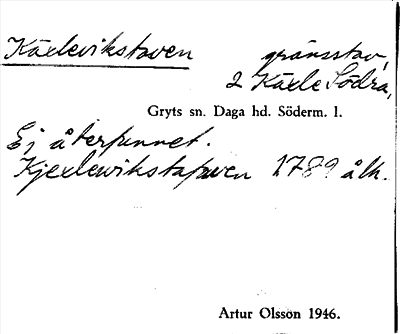 Käxlevikstaven gränsstav,
2 Käxle Södra,
Gryts sn. Daga hd. Söderm. l.
Ej återfunnet.
Kjexlewikstafwen 1789 åLk.
Artur Olsson 1946.